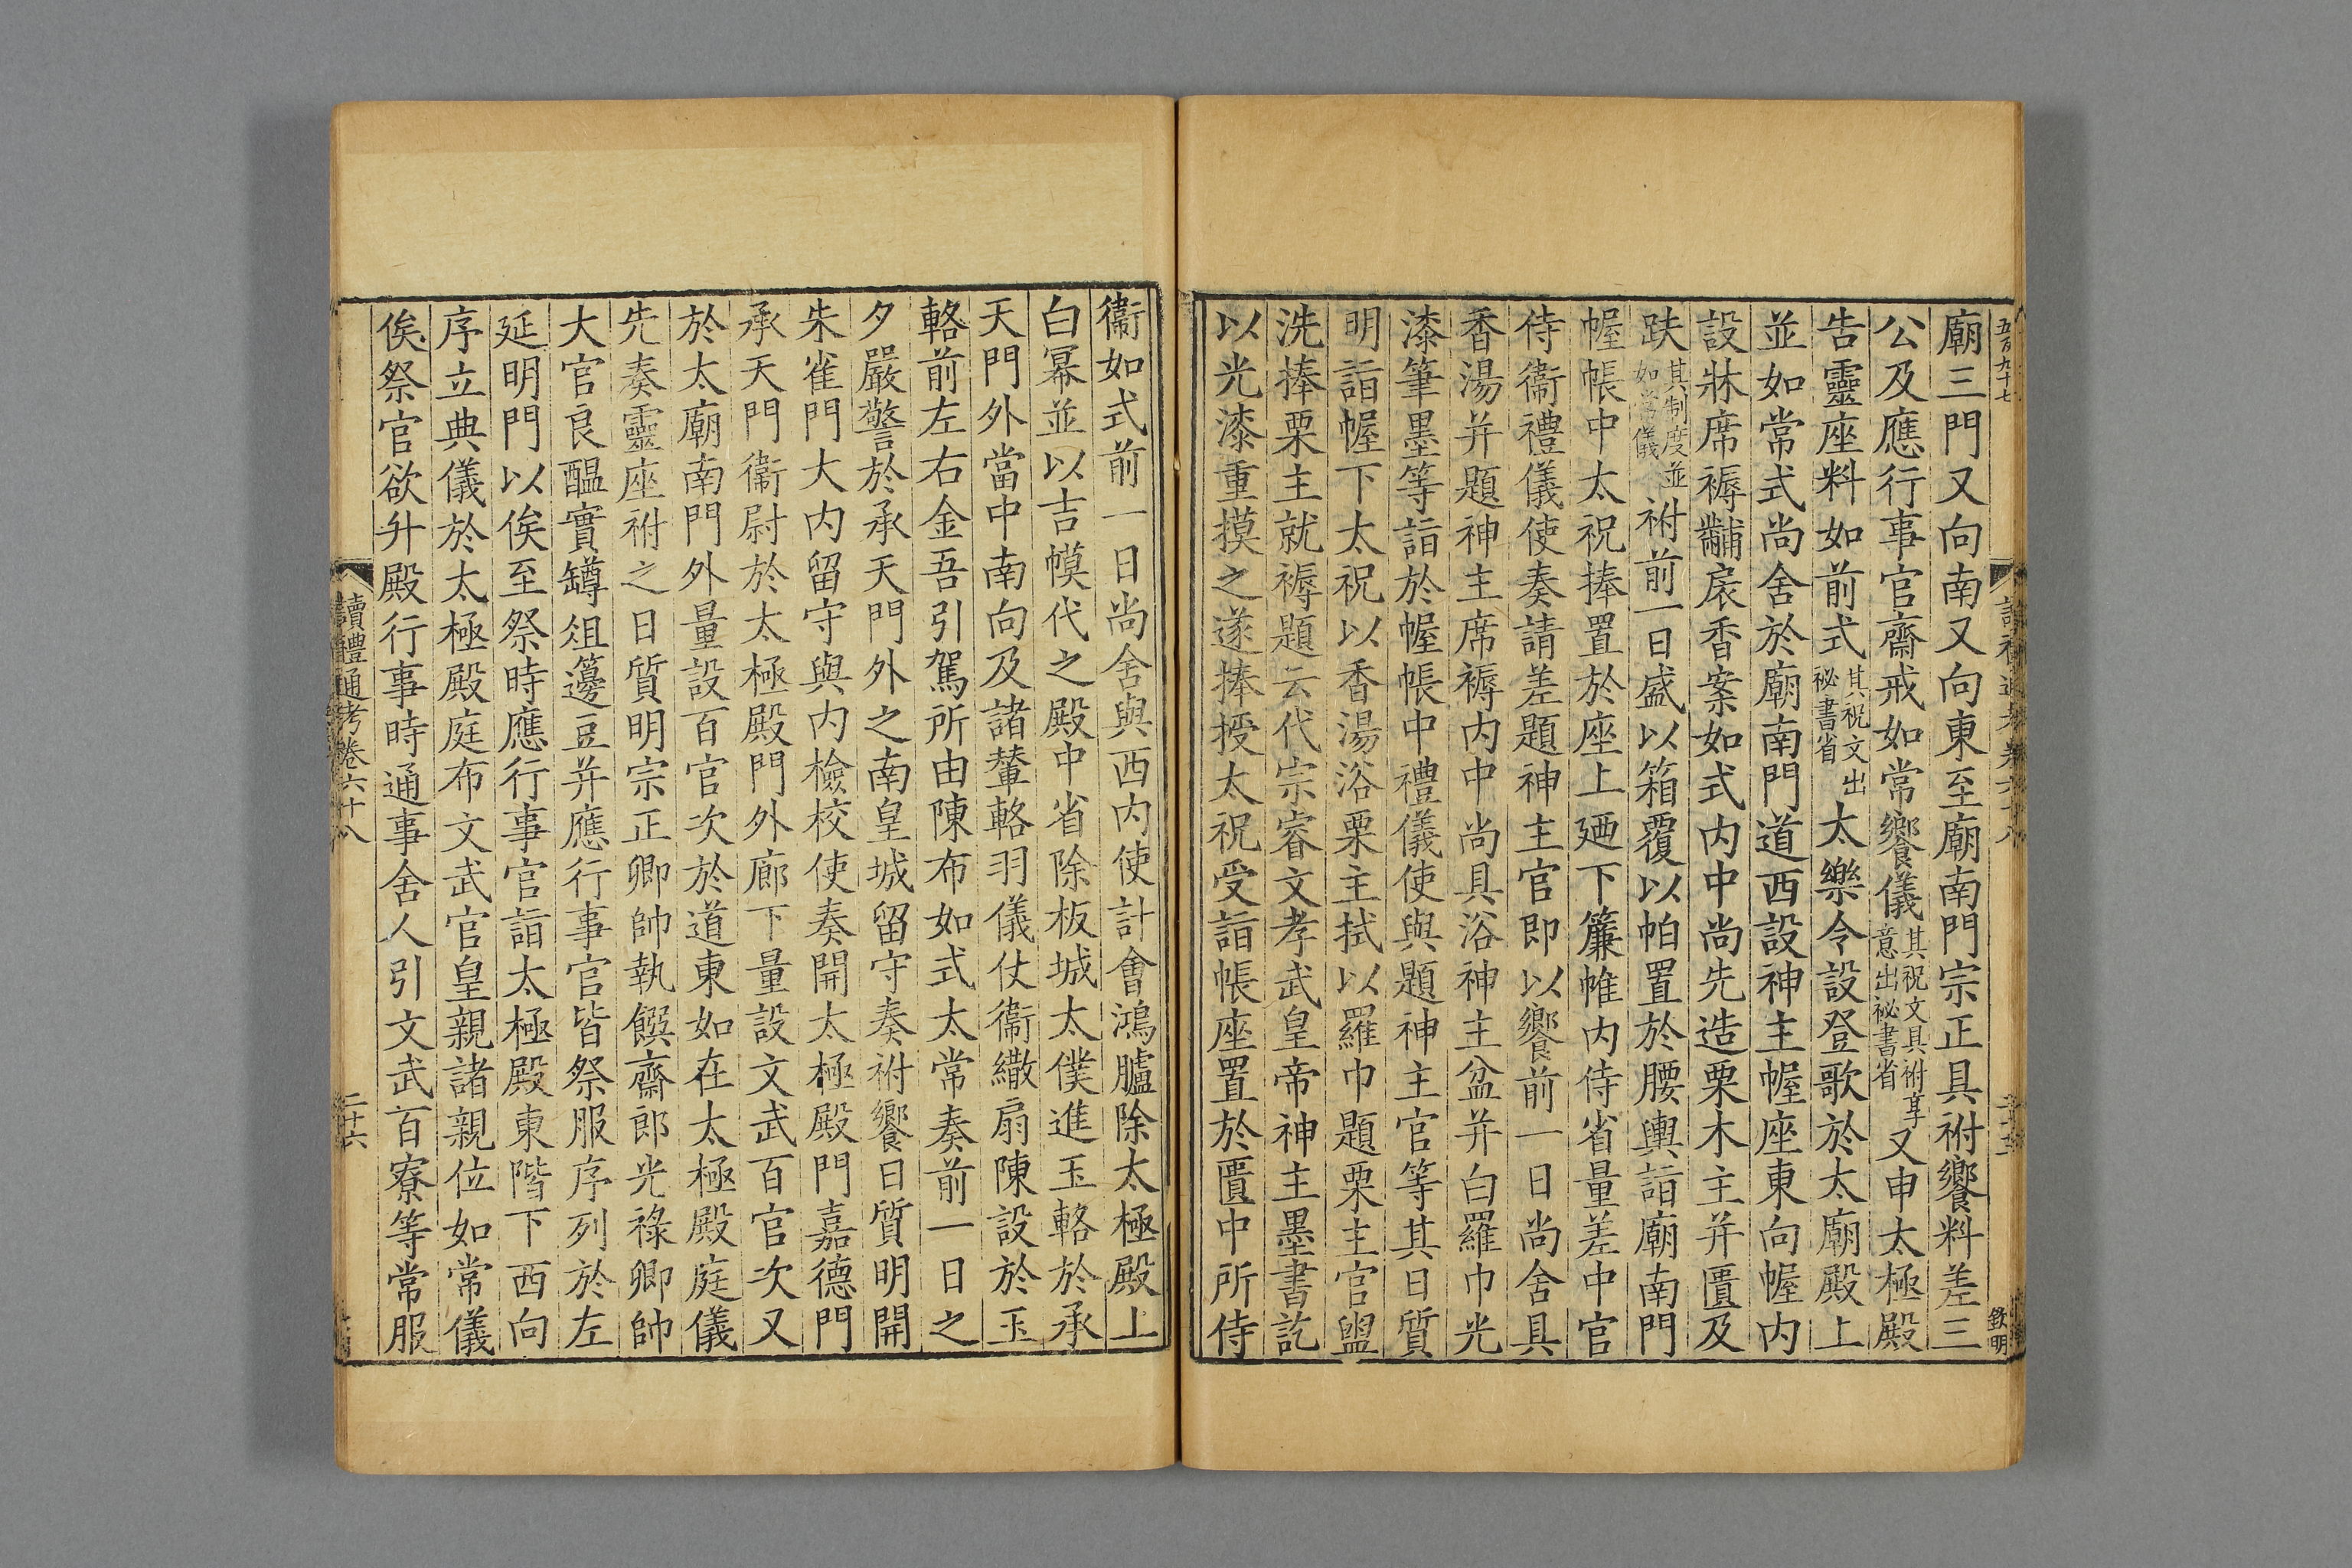 五百九十七
廟三門又向南又向東至廟南門宗正具祔饗料差三
公及應行事官齋戒如常饗儀其祝文具祔享意出祕書省又申太極殿
告靈座料如前式其祝文出祕書省太樂令設登歌於太廟殿上
並如常式尚舍於廟南門道西設神主幄座東向幄内
設牀席褥黼扆香案如式内中尚先造栗木主并匱及
趺其制度並如常儀祔前一日盛以箱覆以帕置於腰輿詣廟南門
幄帳中太祝捧置於座上廼下簾帷内侍省量差中官
侍衞禮儀使奏請差題神主官即以饗前一日尚舍具
香湯并題神主席褥内中尚具浴神主盆并白羅巾光
漆筆墨等詣於幄帳中禮儀使與題神主官等其日質
明詣幄下太祝以香湯浴栗主拭以羅巾題栗主官盥
洗捧栗主就褥題云代宗睿文孝武皇帝神主墨書訖
以光漆重摸之遂捧授太祝受詣帳座置於匱中所侍
欽明
衞如式前一日尚舍與西内使計會鴻臚除太極殿上
白冪並以吉幙代之殿中省除板城太僕進玉輅於承
天門外當中南向及諸輦輅羽儀仗衞繖扇陳設於玉
輅前左右金吾引駕所由陳布如式太常奏前一日之
夕嚴警於承天門外之南皇城留守奏祔饗日質明開
朱雀門大内留守與内檢校使奏開太極殿門嘉德門
承天門衞尉於太極殿門外廊下量設文武百官次又
於太廟南門外量設百官次於道東如在太極殿庭儀
先奏靈座祔之日質明宗正卿帥執饌齋郎光祿卿帥
大官良醞實罇俎籩豆并應行事官皆祭服序列於左
延明門以俟至祭時應行事官詣太極殿東階下西向
序立典儀於太極殿庭布文武官皇親諸親位如常儀
俟祭官欲升殿行事時通事舍人引文武百寮等常服
讀禮通考卷六十八
二十六